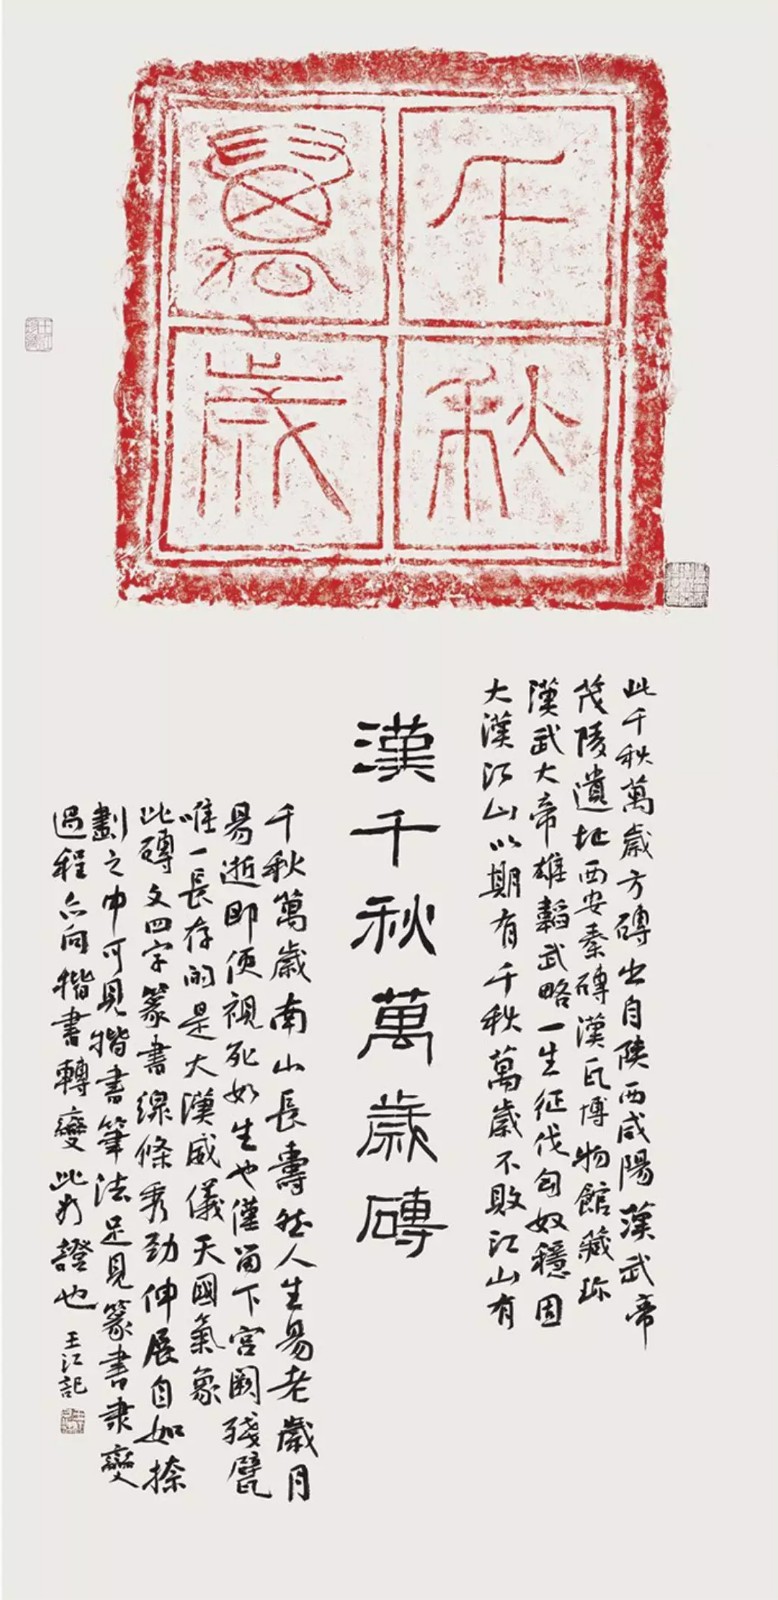 千秋
萬歲
此千秋萬歲方磚出自陝西咸陽漢武帝
茂陵遺址西安秦磚漢瓦博物館藏珎
漢武大帝雄韜武略一生征伐匈奴穩固
大漢江山以期有千秋萬歲不敗江山有
漢千秋萬歲磚
千秋萬歲南山長壽然人生易老歲月
易逝即便視死如生也僅留下宮闕殘甓
唯一長存的是大漢威儀天國氣象
此磚文四字篆書線條秀勁伸展自如捺
劃之中可見楷書筆法足見篆書隶變
過程亦向楷書轉變此為證也
王江記